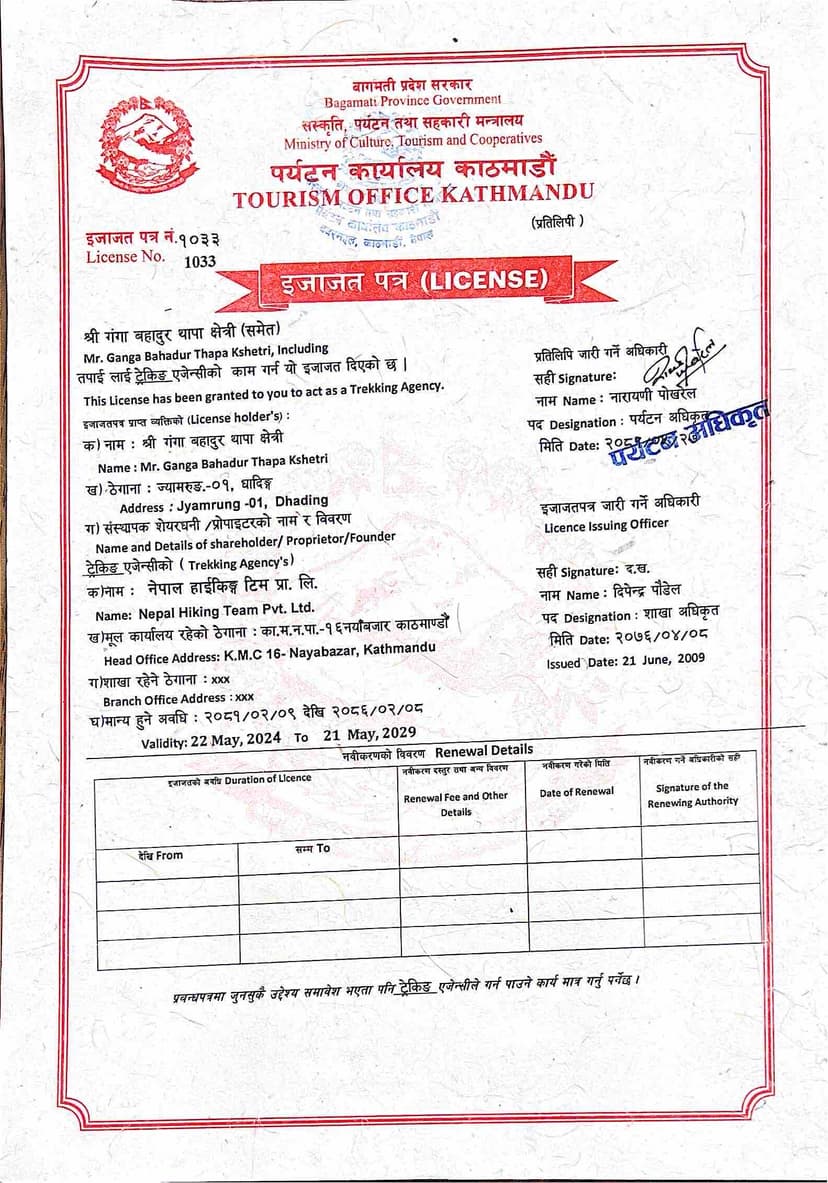 बागमती प्रदेश सरकार
Bagamati Province Government
संस्कृति, पर्यटन तथा सहकारी मन्त्रालय
Ministry of Culture, Tourism and Cooperatives
पर्यटन कार्यालय काठमाडौं
TOURISM OFFICE KATHMANDU
(प्रतिलिपी )
इजाजत पत्र नं.१०३३
License No. 1033
इजाजत पत्र (LICENSE)
श्री गंगा बहादुर थापा क्षेत्री (समेत)
Mr. Ganga Bahadur Thapa Kshetri, Including
तपाई लाई ट्रेकिङ एजेन्सीको काम गर्न यो इजाजत दिएको छ |
This License has been granted to you to act as a Trekking Agency.
इजाजतपत्र प्राप्त व्यक्तिको (License holder's) :
क) नाम : श्री गंगा बहादुर थापा क्षेत्री
Name : Mr. Ganga Bahadur Thapa Kshetri
ख) ठेगाना : ज्यामरुङ.-०१, धादिङ्ग
Address : Jyamrung -01, Dhading
ग) संस्थापक शेयरधनी /प्रोपाइटरको नाम र विवरण
Name and Details of shareholder/ Proprietor/Founder
ट्रेकिङ एजेन्सीको ( Trekking Agency's)
क)नाम : नेपाल हाईकिङ्ग टिम प्रा. लि.
Name: Nepal Hiking Team Pvt. Ltd.
ख)मूल कार्यालय रहेको ठेगाना : का.म.न.पा.-१६नयाँबजार काठमाण्डौं
Head Office Address: K.M.C 16- Nayabazar, Kathmandu
ग)शाखा रहेने ठेगाना : xxx
Branch Office Address : xxx
घ)मान्य हुने अवधि : २०८१/०२/०९ देखि २०८६/०२/०८
Validity: 22 May, 2024 To 21 May, 2029
प्रतिलिपि जारी गर्ने अधिकारी
सही Signature:
नाम Name : नारायणी पोखरेल
पद Designation : पर्यटन अधिकृत
मिति Date:
पर्यटन अधिकृत
इजाजतपत्र जारी गर्ने अधिकारी
Licence Issuing Officer
सही Signature: द.ख.
नाम Name : दिपेन्द्र पौडेल
पद Designation : शाखा अधिकृत
मिति Date: २०७६/०४/०८
Issued Date: 21 June, 2009
नवीकरणको विवरण Renewal Details
इजाजतको अवधि Duration of Licence
नवीकरण दस्तुर तथा अन्य विवरण
Renewal Fee and Other
Details
नवीकरण गरेको मिति
Date of Renewal
नवीकरण गर्ने अधिकारीको सही
Signature of the
Renewing Authority
देखि From
सम्म To
प्रबन्धपत्रमा जुनसुकै उद्देश्य समावेश भएता पनि ट्रेकिङ एजेन्सीले गर्न पाउने कार्य मात्र गर्नु पर्नेछ ।